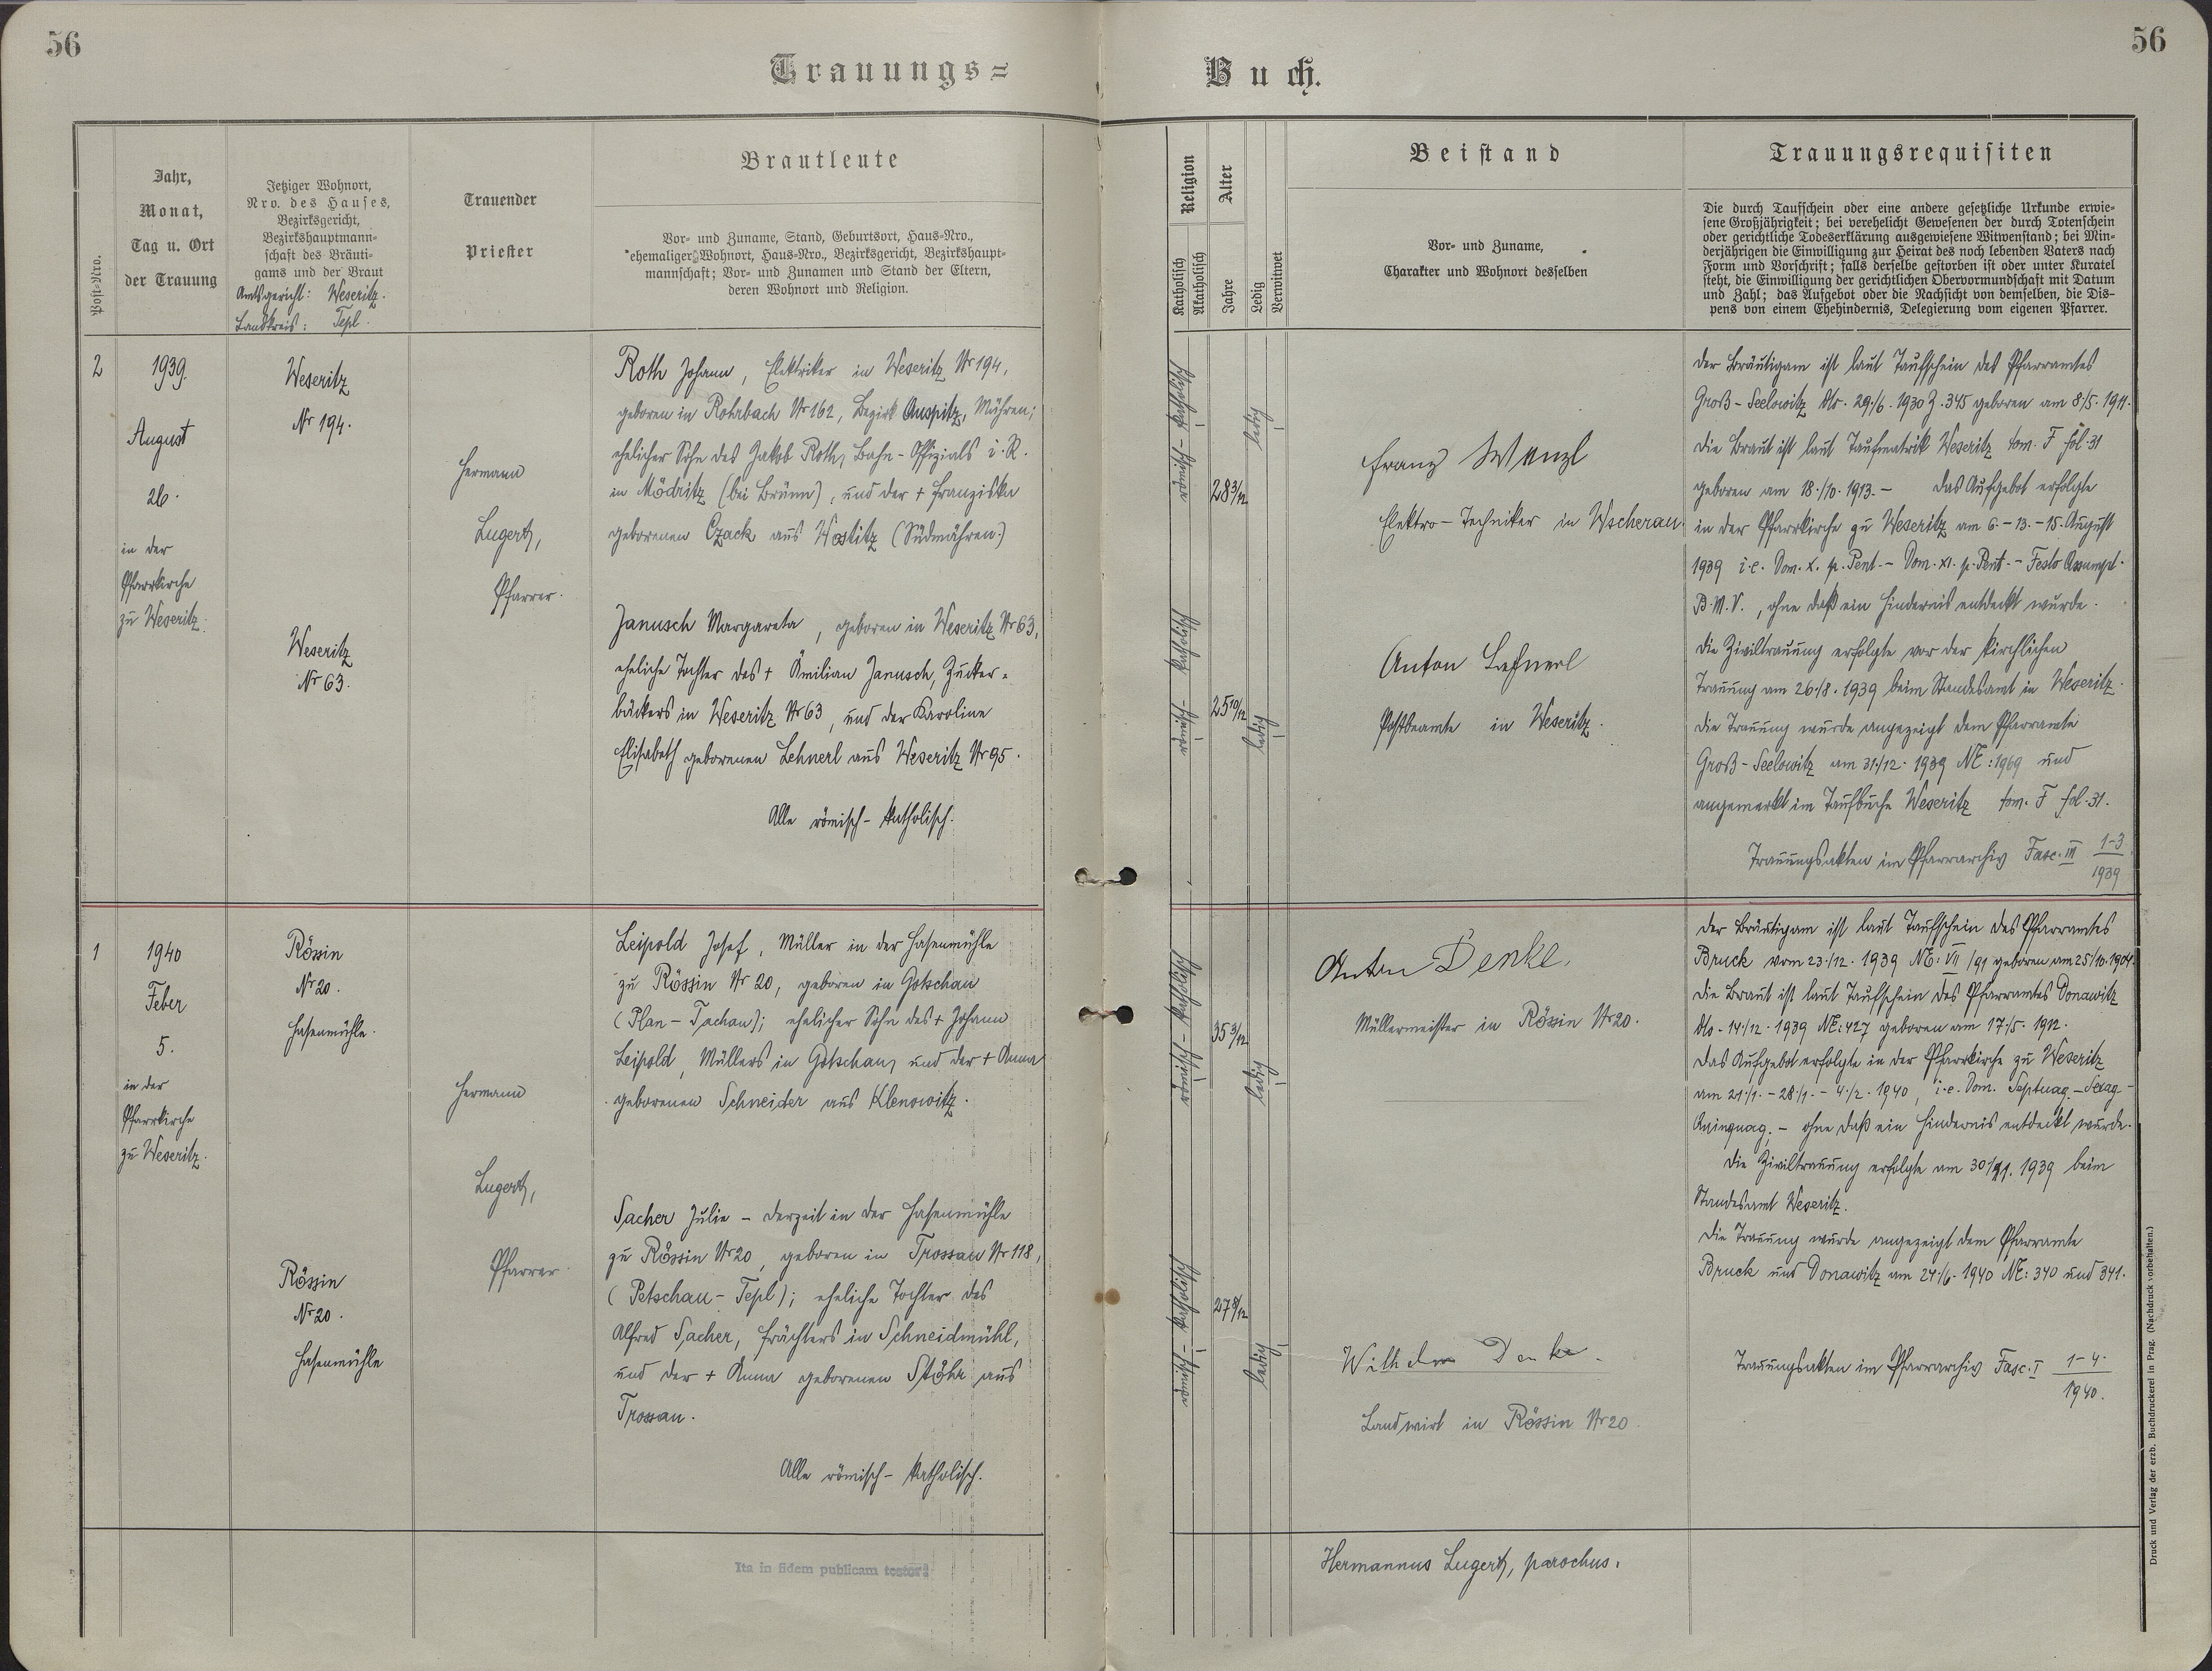 56
56
Trauungs=
Buch.
Post-Nro.
Jahr,
Monat,
Tag u. Ort
der Trauung
Jetziger Wohnort,
Nro. des Hauses,
Bezirksgericht,
Bezirkshauptmann-
schaft des Bräuti-
gams und der Braut
Amtsgericht: Weseritz.
Landkreis: Tepl.
Trauender
Priester
Brautleute
Vor- und Zuname, Stand, Geburtsort, Haus-Nro.,
ehemaliger Wohnort, Haus-Nro., Bezirksgericht, Bezirkshaupt-
mannschaft; Vor- und Zunamen und Stand der Eltern,
deren Wohnort und Religion.
Religion
Katholisch
Akatholisch
Alter
Jahre
Ledig
Verwitwet
Beistand
Vor- und Zuname,
Charakter und Wohnort desselben
Trauungsrequisiten
Die durch Taufschein oder eine andere gesetzliche Urkunde erwie-
sene Großjährigkeit; bei verehelicht Gewesenen der durch Totenschein
oder gerichtliche Todeserklärung ausgewiesene Witwenstand; bei Min-
derjährigen die Einwilligung zur Heirat des noch lebenden Vaters nach
Form und Vorschrift; falls derselbe gestorben ist oder unter Kuratel
steht, die Einwilligung der gerichtlichen Obervormundschaft mit Datum
und Zahl; das Aufgebot oder die Nachsicht von demselben, die Dis-
pens von einem Ehehindernis, Delegierung vom eigenen Pfarrer.
2
1939.
August
26.
in der
Pfarrkirche
zu Weseritz.
Weseritz
Nr 194.
Weseritz
Nr 63.
Hermann
Lugert,
Pfarrer.
Roth Johann, Elektriker in Weseritz Nr 194,
geboren in Rohrbach Nr 162, Bezirk Auspitz, Mähren;
ehelicher Sohn des Jakob Roth, Bahn-Offizials i. R.
in Mödritz (bei Brünn), und der + Franziska
geborenen Czack aus Wostitz (Südmähren.)
Janusch Margareta, geboren in Weseritz Nr 63,
eheliche Tochter des + Ämilian Janusch, Zucker-
bäckers in Weseritz Nr 63, und der Karoline
Elisabeth geborenen Lehnerl aus Weseritz Nr 95.
Alle römisch-katholisch.
römisch-katholisch
28 3/12
ledig
römisch-katholisch
25 10/12
ledig
Franz Wenzl
Elektro-Techniker in Wscherau.
Anton Lehnerl
Postbeamte in Weseritz.
Der Bräutigam ist laut Taufschein des Pfarramtes
Groß-Seelowitz dto. 29./6. 1930 Z. 345 geboren am 8./5. 1911.
Die Braut ist laut Taufmatrik Weseritz tom. F fol. 31
geboren am 18./10. 1913. - Das Aufgebot erfolgte
in der Pfarrkirche zu Weseritz am 6.-13.-15. August
1939 i.e. Dom. X. p. Pent. - Dom. XI. p. Pent. - Festo Assumpt.
B.M.V., ohne daß ein Hindernis entdeckt wurde.
Die Ziviltrauung erfolgte vor der kirchlichen
Trauung am 26./8. 1939 beim Standesamt in Weseritz.
Die Trauung wurde angezeigt dem Pfarramte
Groß-Seelowitz am 31./12. 1939 NE: 1969 und
angemerkt im Taufbuche Weseritz tom. F fol. 31.
Trauungsakten im Pfarrarchiv Fasc. III 1-3/1939
1
1940
Feber
5.
in der
Pfarrkirche
zu Weseritz.
Rössin
Nr 20.
Hasenmühle.
Rössin
Nr 20.
Hasenmühle
Hermann
Lugert,
Pfarrer
Leipold Josef, Müller in der Hasenmühle
zu Rössin Nr 20, geboren in Gotschau
(Plan-Tachau); ehelicher Sohn des + Johann
Leipold, Müllers in Gotschau, und der + Anna
geborenen Schneider aus Klenowitz.
Sacher Julie - derzeit in der Hasenmühle
zu Rössin Nr 20, geboren in Trossau Nr 118,
(Petschau-Tepl); eheliche Tochter des
Alfred Sacher, Frächters in Schneidmühl,
und der + Anna geborenen Stöhr aus
Trossau.
Alle römisch-katholisch.
römisch-katholisch
35 3/12
ledig
römisch-katholisch
27 8/12
ledig
Anton Denke,
Müllermeister in Rössin Nr 20.
Wilhelm Denke.
Landwirt in Rössin Nr 20.
Der Bräutigam ist laut Taufschein des Pfarramtes
Bruck vom 23./12. 1939 NE: VII/91 geboren am 25./10. 1904.
Die Braut ist laut Taufschein des Pfarramtes Donawitz
dto. 14./12. 1939 NE: 427 geboren am 17./5. 1912.
Das Aufgebot erfolgte in der Pfarrkirche zu Weseritz
am 21./1. - 28./1. - 4./2. 1940, i.e. Dom. Septuag. - Sexag. -
Quinquag. - ohne daß ein Hindernis entdeckt wurde.
Die Ziviltrauung erfolgte am 1939 beim
Standesamt Weseritz.
Die Trauung wurde angezeigt dem Pfarramte
Bruck und Donawitz am 24./6. 1940 NE: 340 und 341.
Trauungsakten im Pfarrarchiv Fasc. I 1-4./1940.
Ita in fidem publicam testor:
Hermannus Lugert, parochus.
Druck und Verlag der erzb. Buchdruckerei in Prag. (Nachdruck vorbehalten.)